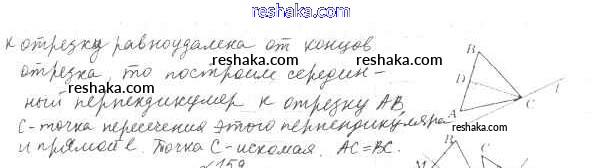 reshaka.com
к отрезку равноудалена от концов
отрезка, то построим середин-
ный перпендикуляр к отрезку AB.
C-точка пересечения этого перпендикуляра
и прямой ℓ. Точка C-искомая. AC=BC.
B
D
A
C
ℓ
№159
M
B
C
reshaka.com
reshaka.com
reshaka.com
reshaka.com